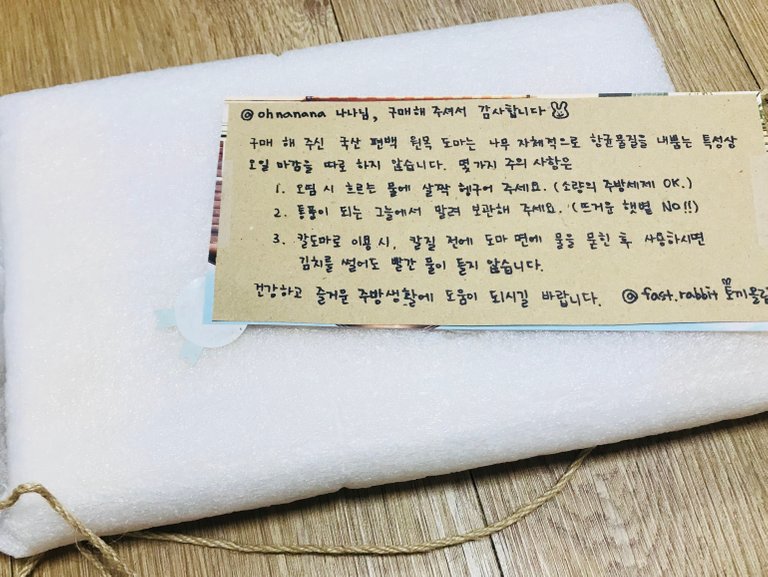 @ohnanana 나나님, 구매해 주셔서 감사합니다
구매 해 주신 국산 편백 원목 도마는 나무 자체적으로 항균물질을 내뿜는 특성상
오일 마감을 따로 하지 않습니다. 몇가지 주의 사항은
1. 오염 시 흐르는 물에 살짝 헹구어 주세요. (소량의 주방세제 OK.)
2. 통풍이 되는 그늘에서 말려 보관해 주세요. (뜨거운 햇볕 NO!!)
3. 칼도마로 이용 시, 칼질 전에 도마 면에 물을 묻힌 후 사용하시면
김치를 썰어도 빨간 물이 들지 않습니다.
건강하고 즐거운 주방생활에 도움이 되시길 바랍니다. @fast.rabbit